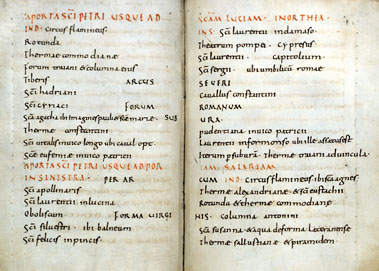 APORTASCĪ PETRI USQUE AD
IND · Circus flamineus
Rotunda
Thermae commodianae
Forum traiani & columna eius
Tiberis ARCUS
Scī hadriani
Scī cyriaci FORUM
Scā agatha ibi imagines pauli & scē mariae SUB
Thermae constantini
Scī uitalis inuico longo ubi caual opt
Scae eufemiae inuico patricii
APORTASCĪ PETRI USQUE AD POR
IN SINISTRA PER AR
Scī apollinaris
Scī laurentii inlucina
Oboliscum FORMA VIRGI
Scī siluestri · ibi balneum
Scī felicis in pincis
SCAM LUCIAM · IN ORTHEA
INS Scī laurentii in damaso
Theatrum pompei · Cypresus
Scī laurentii capitolium
Scī sergii ubi umbilicum romae
SEUERI
Cauallus constantini
ROMANUM
URA
pudentiana inuico patricii
Laurentii in formonso ubi ille assatus est
Iterum p suburā · Thermae traiani ad uincula
IAM SALARIAM
CUM IND Circus flamineus ibi scā agnes
Thermae alexandrianae & scī eustachii
Rotunda & thermae commodianae
NIS · columna antonini
Scā susanna & aqua de forma lateranense
Thermae sallustianae & piramidem